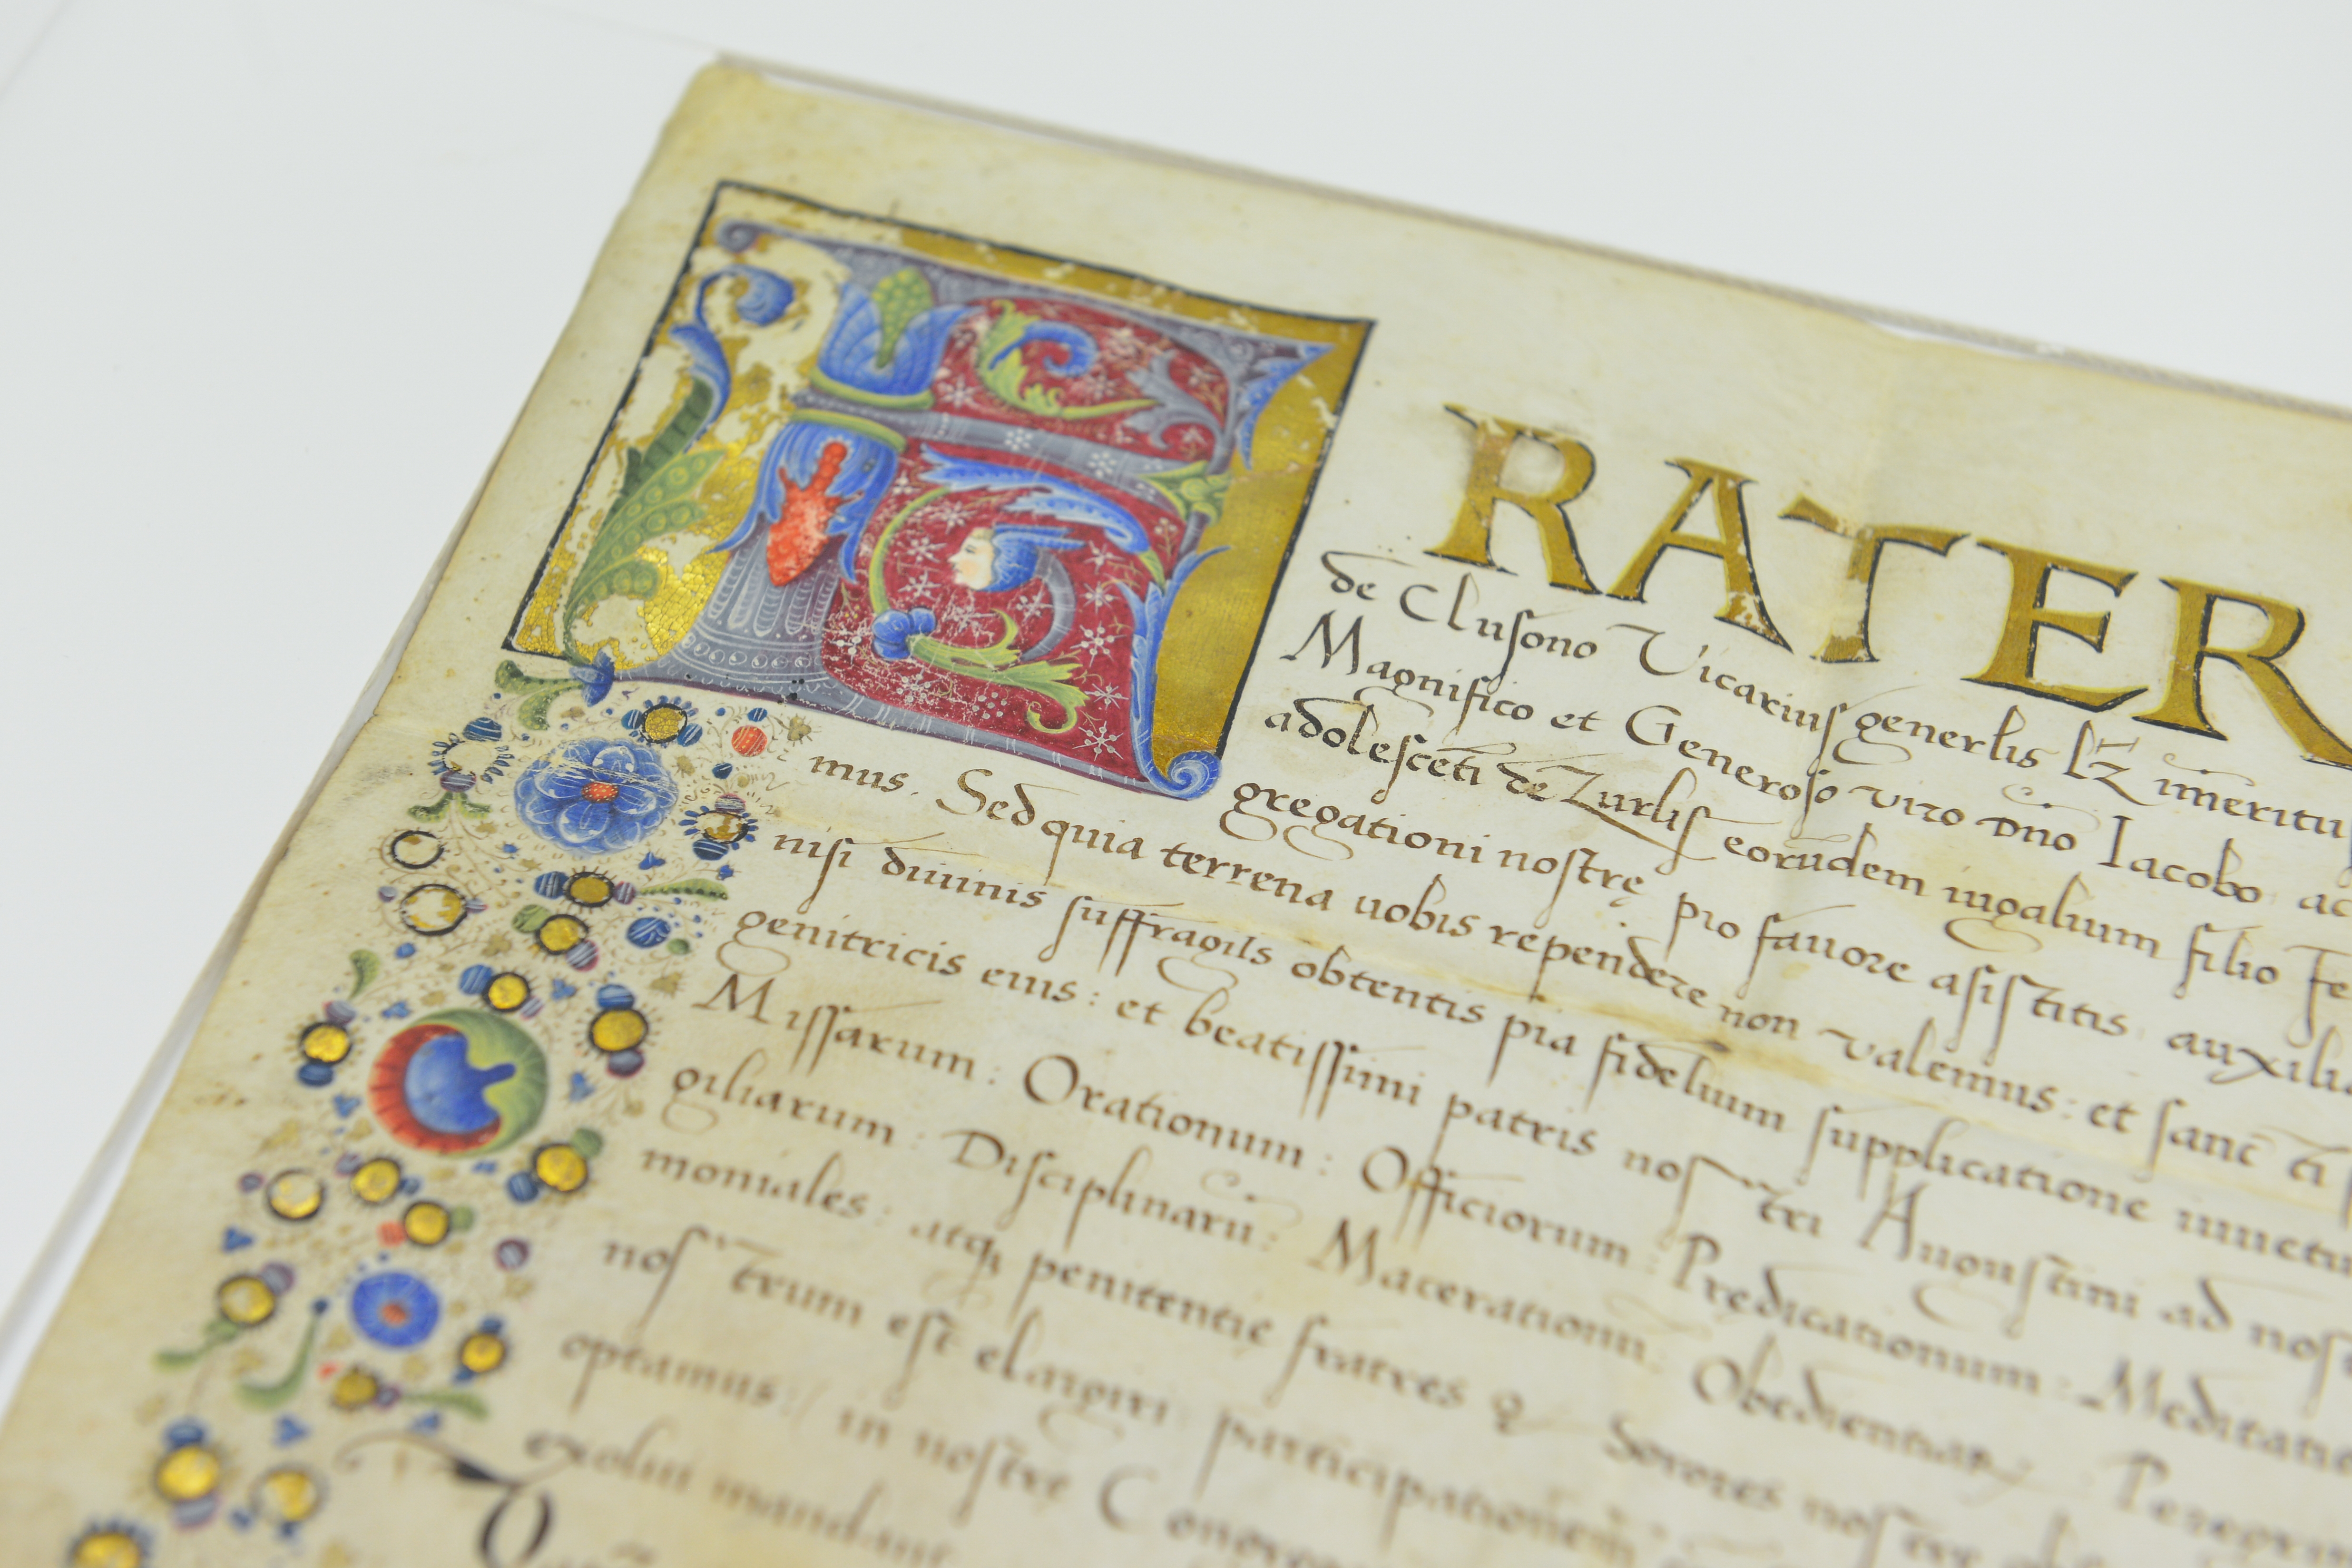 FRATER
de Clusono Vicarius generlis lz imeritu
Magnifico et Generoso viro dno Iacobo ac
adolesceti de Zurlis eorudem iugalium filio Fe
gregationi nostrę pio favore asistitis auxiliu
mus. Sed quia terrena uobis rependere non valemus: et sanc ti
nisi diuinis suffragiis obtentis pia fidelium supplicatione
genitricis eius: et beatissimi patris nos tri Augustini ad nos
Missarum: Orationum: Officiorum: Prędicationum: Meditatio
giliarum: Disciplinaru: Macerationu: Obedientiar: Peregri
moniales: atq penitentię fratres Sorores
nos trum est elargiri participationem
optamus: in nostre
exolui mandant